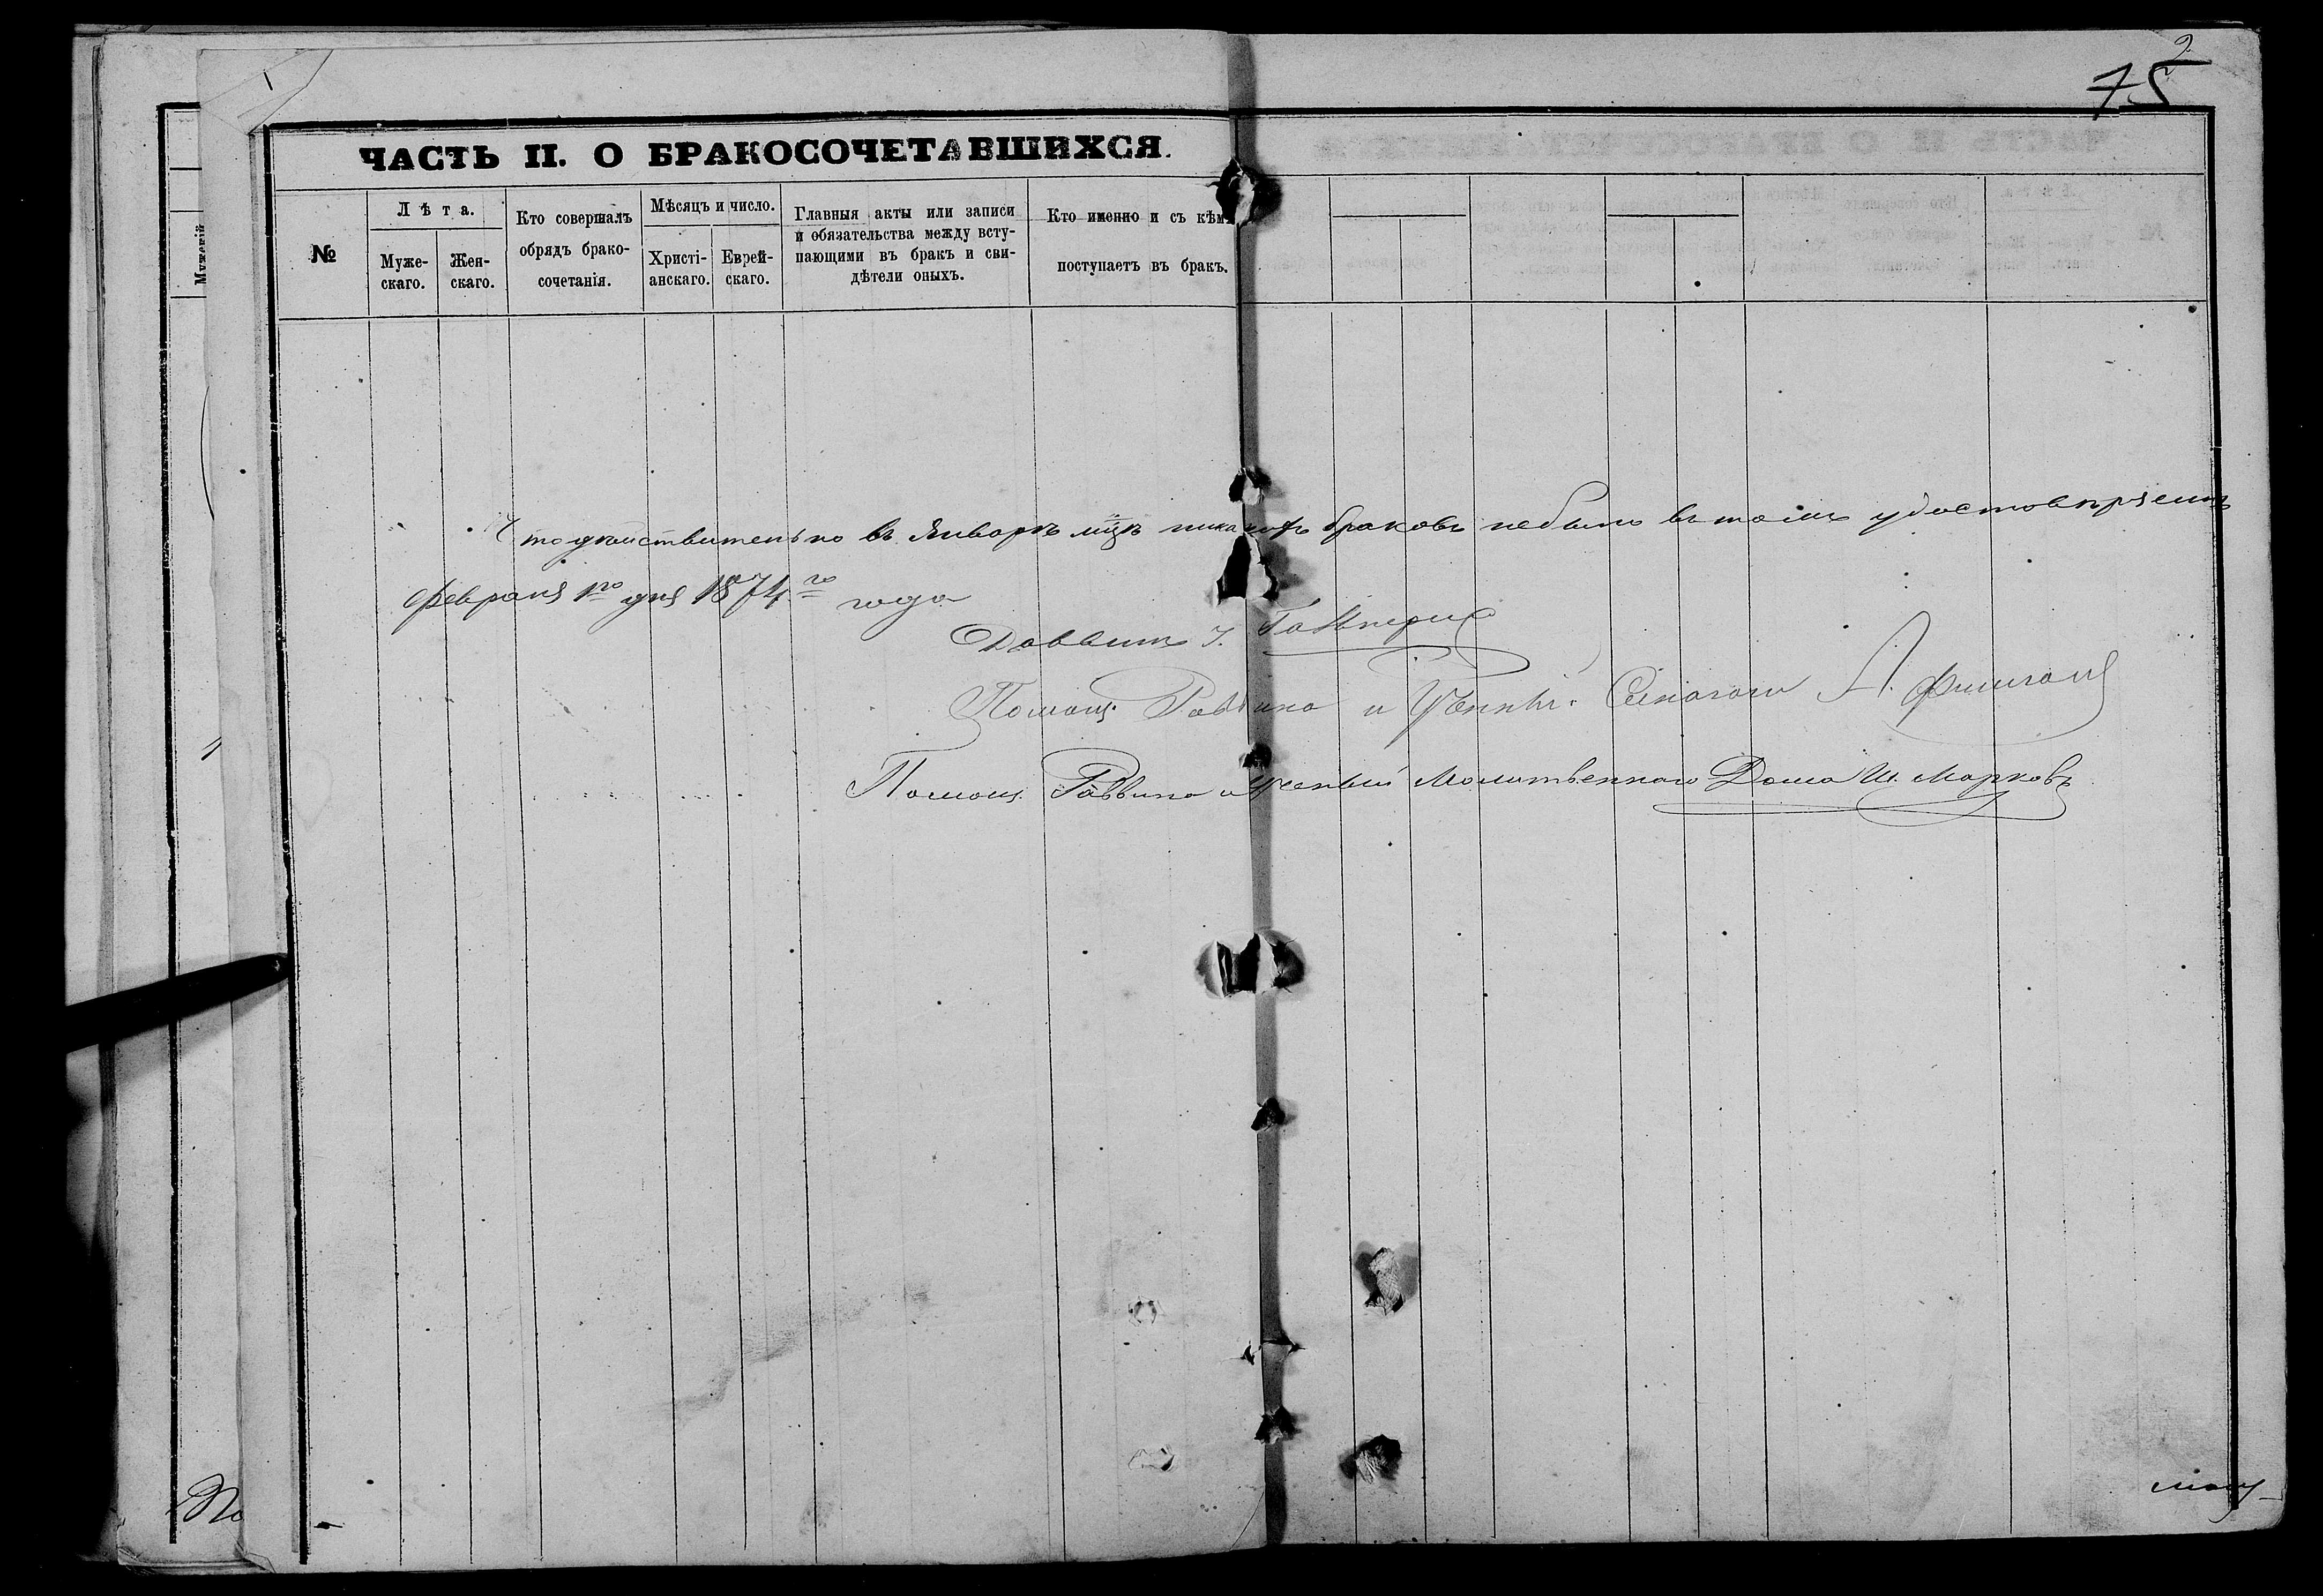 75
2
ЧАСТЬ II. О БРАКОСОЧЕТАВШИХСЯ.
№
Лѣта.
Муже-
скаго.
Жен-
скаго.
Кто совершалъ
обрядъ брако-
сочетанія.
Мѣсяцъ и число.
Христі-
анскаго.
Еврей-
скаго.
Главныя акты или записи
и обязательства между всту-
пающими въ бракъ и сви-
дѣтели оныхъ.
Кто именно и съ кѣмъ
поступаетъ въ бракъ.
Мужескій
Что дѣйствительно въ Январѣ мцѣ никакихъ браковъ небыло въ томъ удостовѣряемъ
Февраля 1го дня 1874го года
Даввитъ Гальперив
Помощ. Раввина и Синагоги А. Фишгаля
Помощ. Раввина и Ученый Молитвеннаго Дома Ш. Марковъ